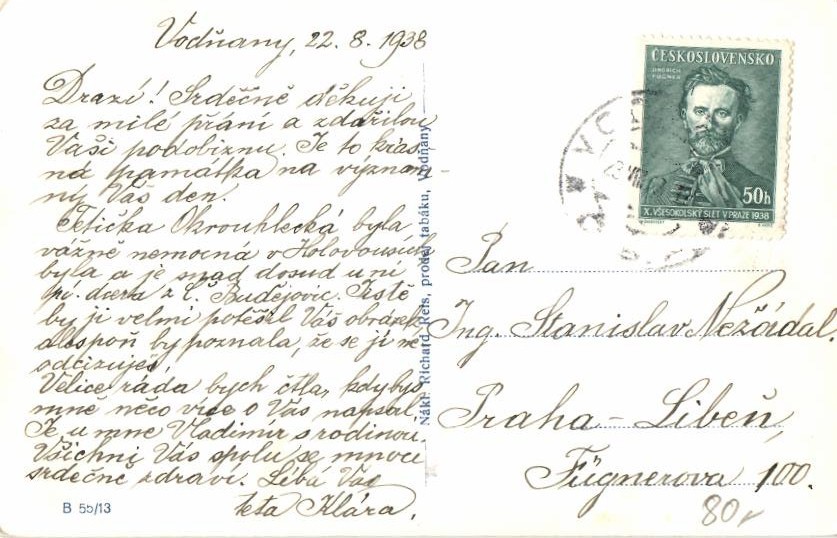 Vodňany, 22. 8. 1938
Drazí! Srdečně děkuji
za milé přání a zdařilou
Vaši podobiznu. Je to krás-
ná památka na význam-
ný Váš den.
Tetička Okrouhlecká byla
vážně nemocná v Holovousích
byla a je snad dosud u ní
pí. dcera z Č. Budějovic. Jistě
by ji velmi potěšil Váš obrázek
alespoň by poznala, že se jí ne
odcizuješ.
Velice ráda bych čtla, kdybys
mně něco více o Vás napsal.
Je u mne Vladimír s rodinou.
Všichni Vás spolu se mnou
srdečně zdraví. Líbá Vás
teta Klára.
B 55/13
Nákl. Richard Reis, prodej tabáku, Vodňany
ČESKOSLOVENSKO
JINDŘICH
FÜGNER
50h
X. VŠESOKOLSKÝ SLET V PRAZE 1938
Pan
Ing. Stanislav Nežádal.
Praha - Libeň,
Fügnerova 100.
80,-